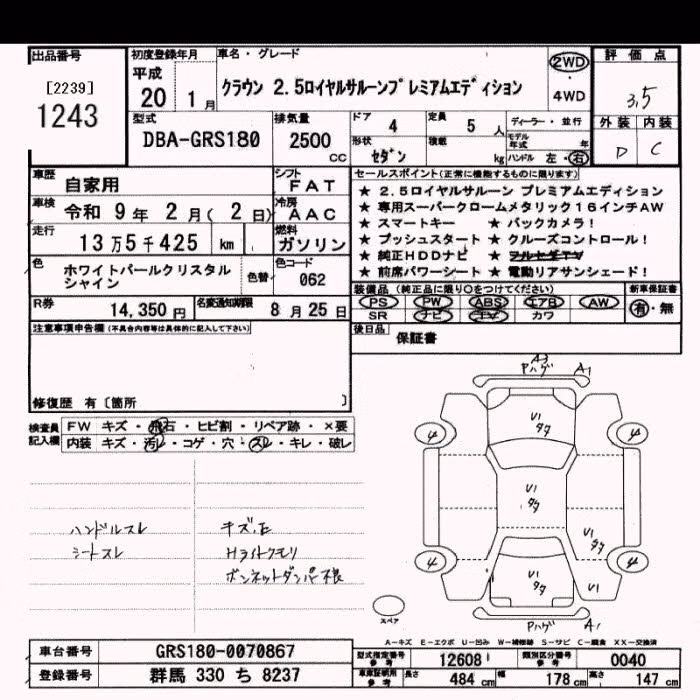 出品番号
[2239]
1243
初度登録年月
平成
20 1月
車名・グレード
クラウン 2.5ロイヤルサルーンプレミアムエディション
2WD
4WD
評価点
3,5
外装 内装
D C
型式
DBA-GRS180
排気量
2500
CC
ドア 4
定員 5 人
形状 セダン
積載 kg
ディーラー・並行
モデル年式 年
ハンドル 左・右
車歴 自家用
車検 令和 9年 2月( 2日)
走行 13万5千425 km
色 ホワイトパールクリスタルシャイン
色替
シフト FAT
冷房 AAC
燃料 ガソリン
色コード 062
R券 14,350円
名変通知期限 8月25日
セールスポイント(正常に機能するものに限ります)
★ 2.5ロイヤルサルーン プレミアムエディション
★ 専用スーパークロームメタリック16インチAW
★ スマートキー ★ バックカメラ!
★ プッシュスタート ★ クルーズコントロール!
★ 純正HDDナビ ★ フルセグTV
★ 前席パワーシート ★ 電動リアサンシェード!
装備品(純正品に限り○をつけてください)
新車保証書
PS PW ABS エアB AW
SR ナビ TV カワ
有・無
後日品 保証書
注意事項申告欄(不具合内容等は具体的に記入して下さい)
修復歴 有〔箇所 〕
検査員記入欄
FW キズ・飛石・ヒビ割・リペア跡・×要
内装 キズ・汚レ・コゲ・穴・スレ・キレ・破レ
ハンドルスレ
シートスレ
キズ,E
Hライトクモリ
ボンネットダンパー不良
A3
Pハゲ A1
U1
タタ
4 4
U1
タタ
U1
タタ
4 4
U1
タタ
U1
Pハゲ A1
スペア
A-キズ E-エクボ U-凹み W-補修跡 S-サビ C-腐食 XX-交換済
車台番号 GRS180-0070867
登録番号 群馬 330 ち 8237
型式指定番号 参考 12608
類別区分番号 参考 0040
車庫証明用 参考 長さ 484 cm 幅 178 cm 高さ 147 cm